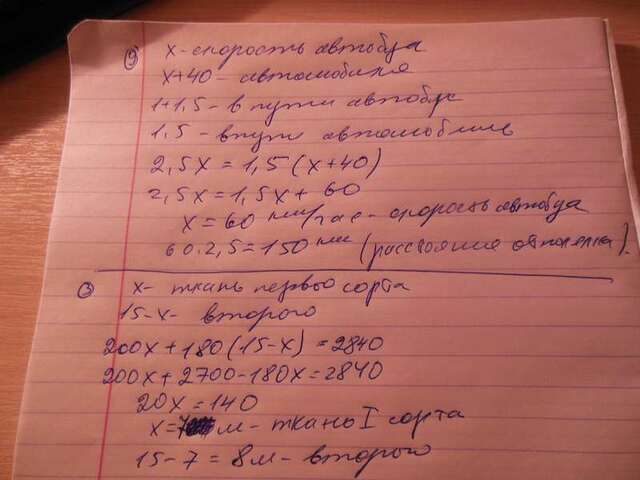 9) х - скорость автобуса
х+40 - автомобиля
1+1,5 - в пути автобус
1,5 - в пути автомобиль
2,5х = 1,5(х+40)
2,5х = 1,5х + 60
х = 60 км/час - скорость автобуса
60·2,5 = 150 км (расстояние).
3) х - ткань первого сорта
15-х - второго
200х + 180(15-х) = 2840
200х + 2700 - 180х = 2840
20х = 140
х = 7 м - ткань I сорта
15 - 7 = 8 м - второго